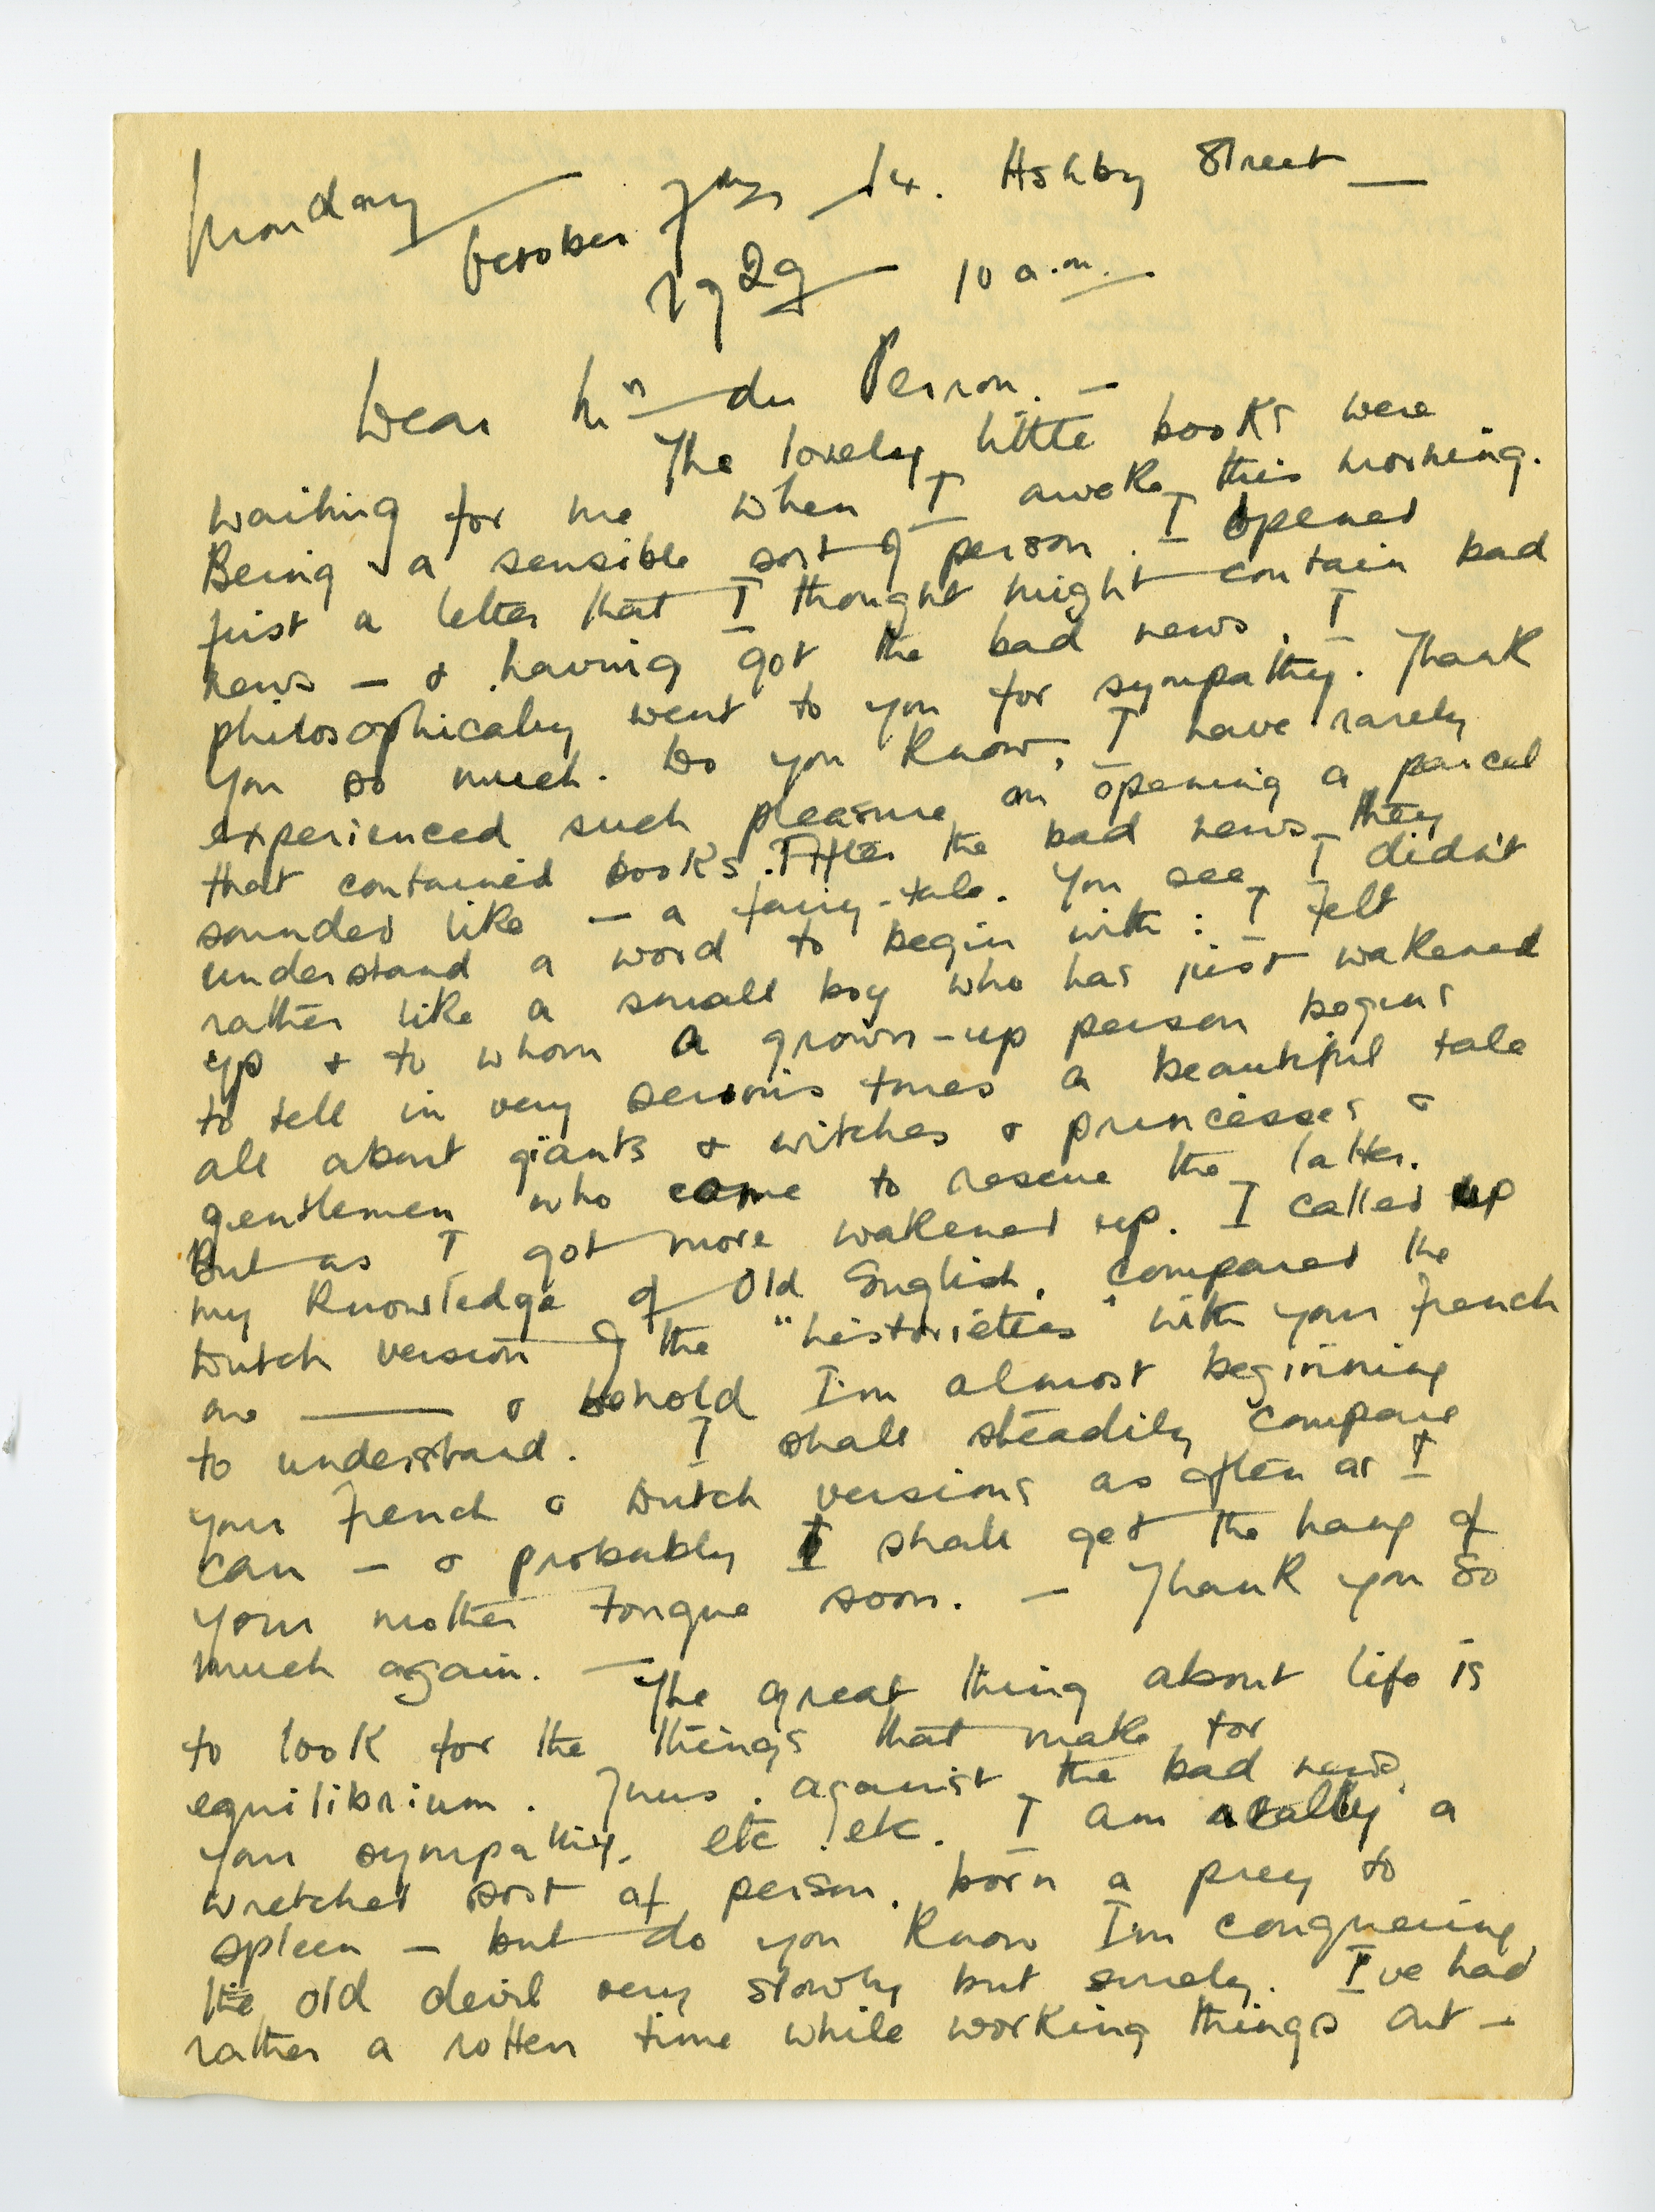 Monday October 7th 14. Ashby Street —
1929 — 10 a.m.
Dear Mr du Perron. —
The lovely little books were
waiting for me when I awoke this morning.
Being a sensible sort of person. I opened
first a letter that I thought might contain bad
news — & having got the bad news, I
philosophically went to you for sympathy. Thank
you so much. Do you know, I have rarely
experienced such pleasure on opening a parcel
that contained books. After the bad news they
sounded like — a fairy-tale. You see, I didn't
understand a word to begin with: I felt
rather like a small boy who has just wakened
up & to whom a grown-up person begins
to tell in very serious tones a beautiful tale
all about giants & witches & princesses &
gentlemen who came to rescue the latter.
But as I got more wakened up. I called up
my knowledge of Old English, compared the
Dutch version of the "historiettes" with your French
one — & behold I'm almost beginning
to understand. I shall steadily compare
your French & Dutch versions as often as I
can — & probably I shall get the hang of
your mother tongue soon. — Thank you so
much again. — The great thing about life is
to look for the things that make for
equilibrium. Thus. against the bad news,
your sympathy, etc. etc. I am really a
wretched sort of person. born a prey to
spleen — but do you know I'm conquering
the old devil very slowly but surely. I've had
rather a rotten time while working things out —